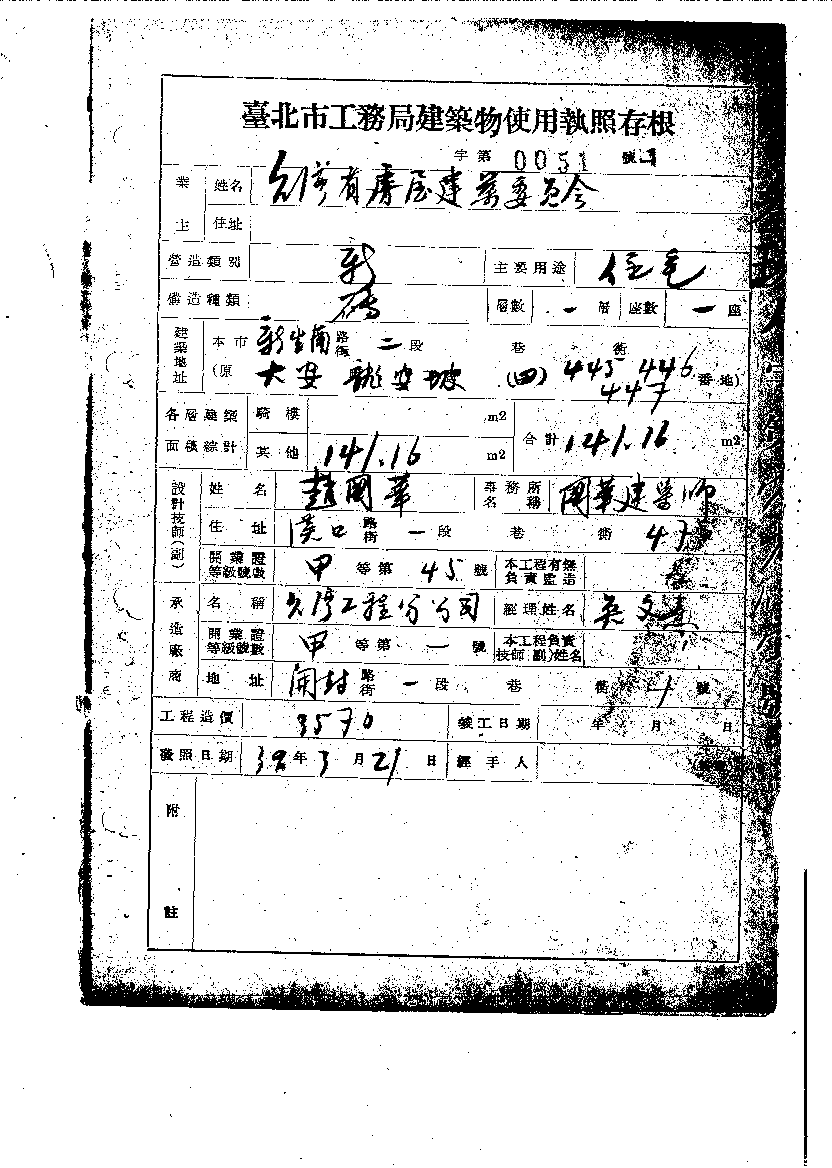 臺北市工務局建築物使用執照存根
字第 0051 號
業主 姓名 有房屋建築委員會
住址
營造類別 新 主要用途 住宅
構造種類 磚 層數 一層 座數 一座
建築地址 本市 新生南 路街 二段 巷 衖
(原 大安 龍安坡 (四) 445 446 447 番地)
各層建築面積綜計 騎樓 m2
其他 141.16 m2 合計 141.16 m2
設計技師(副) 姓名 趙國華 事務所名稱 國華建築師
住址 漢口 路街 一段 巷 衖 47
開業證等級號數 甲 等第 45 號 本工程有無負責監造
承造廠商 名稱 台灣工程分公司 經理姓名 吳文熹
開業證等級號數 甲 等第 一 號 本工程負責技師(副)姓名
地址 開封 路街 一段 巷 衖 1 號
工程造價 3570 竣工日期 年 月 日
發照日期 39年3月21日 經手人
附註